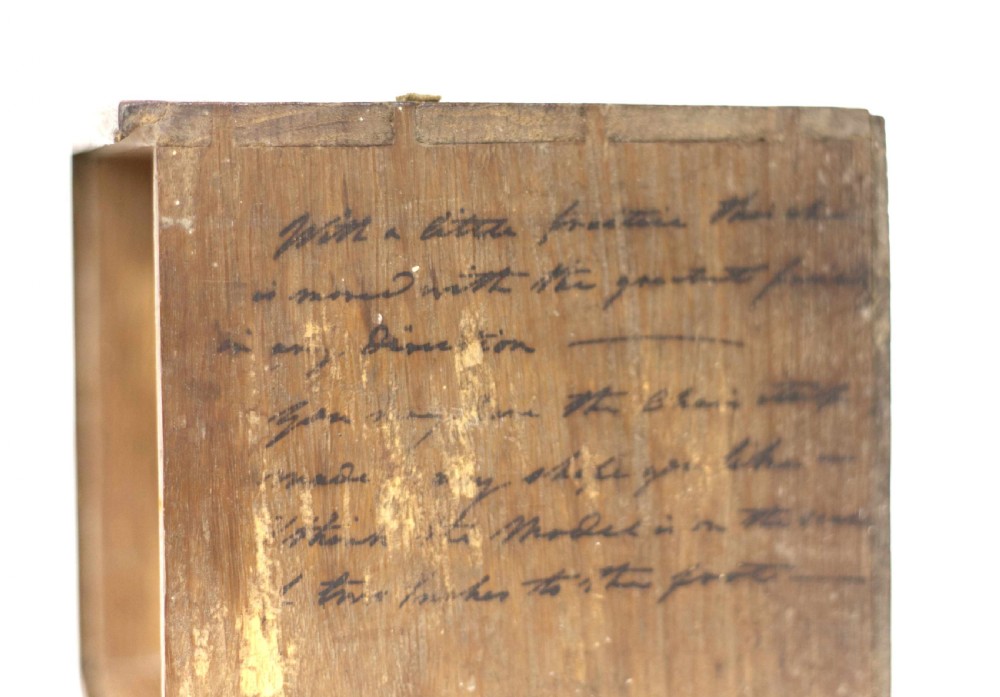 With a little practice this chair
is moved with the greatest
in any direction —
You may have the Chair
made any shape you like —
I think the Model is on the scale
two Inches to the foot —